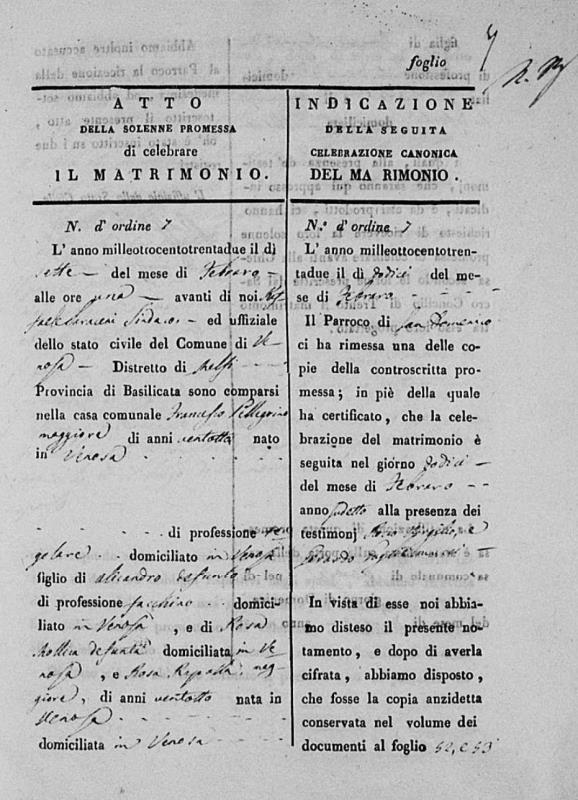 foglio 7
ATTO
DELLA SOLENNE PROMESSA
di celebrare
IL MATRIMONIO.
N. d'ordine 7
L' anno milleottrocentotrentadue il dì
sette del mese di Febraro
alle ore una avanti di noi
Sindaco ed uffiziale
dello stato civile del Comune di Ve
nosa Distretto di Melfi
Provincia di Basilicata sono comparsi
nella casa comunale Francesco Pellegrino
maggiore di anni ventotto nato
in Venosa
di professione
domiciliato in Venosa
figlio di defunto
di professione facchino domici-
liato in Venosa, e di Rosa
defunta domiciliata in Ve
nosa, e Rosa mag
giore, di anni ventotto nata in
Venosa
domiciliata in Venosa
INDICAZIONE
DELLA SEGUITA
CELEBRAZIONE CANONICA
DEL MA RIMONIO.
N.° d'ordine 7
L' anno milleottrocentotren-
tadue il dì dodici del me-
se di Febraro
Il Parroco di San Domenico
ci ha rimessa una delle co-
pie della controscritta pro-
messa; in piè della quale
ha certificato, che la cele-
brazione del matrimonio è
seguita nel giorno dodici
del mese di Febraro
anno sudetto alla presenza dei
testimonj
In vista di esse noi abbia-
mo disteso il presente no-
tamento, e dopo di averla
cifrata, abbiamo disposto,
che fosse la copia anzidetta
conservata nel volume dei
documenti al foglio 52, e 53